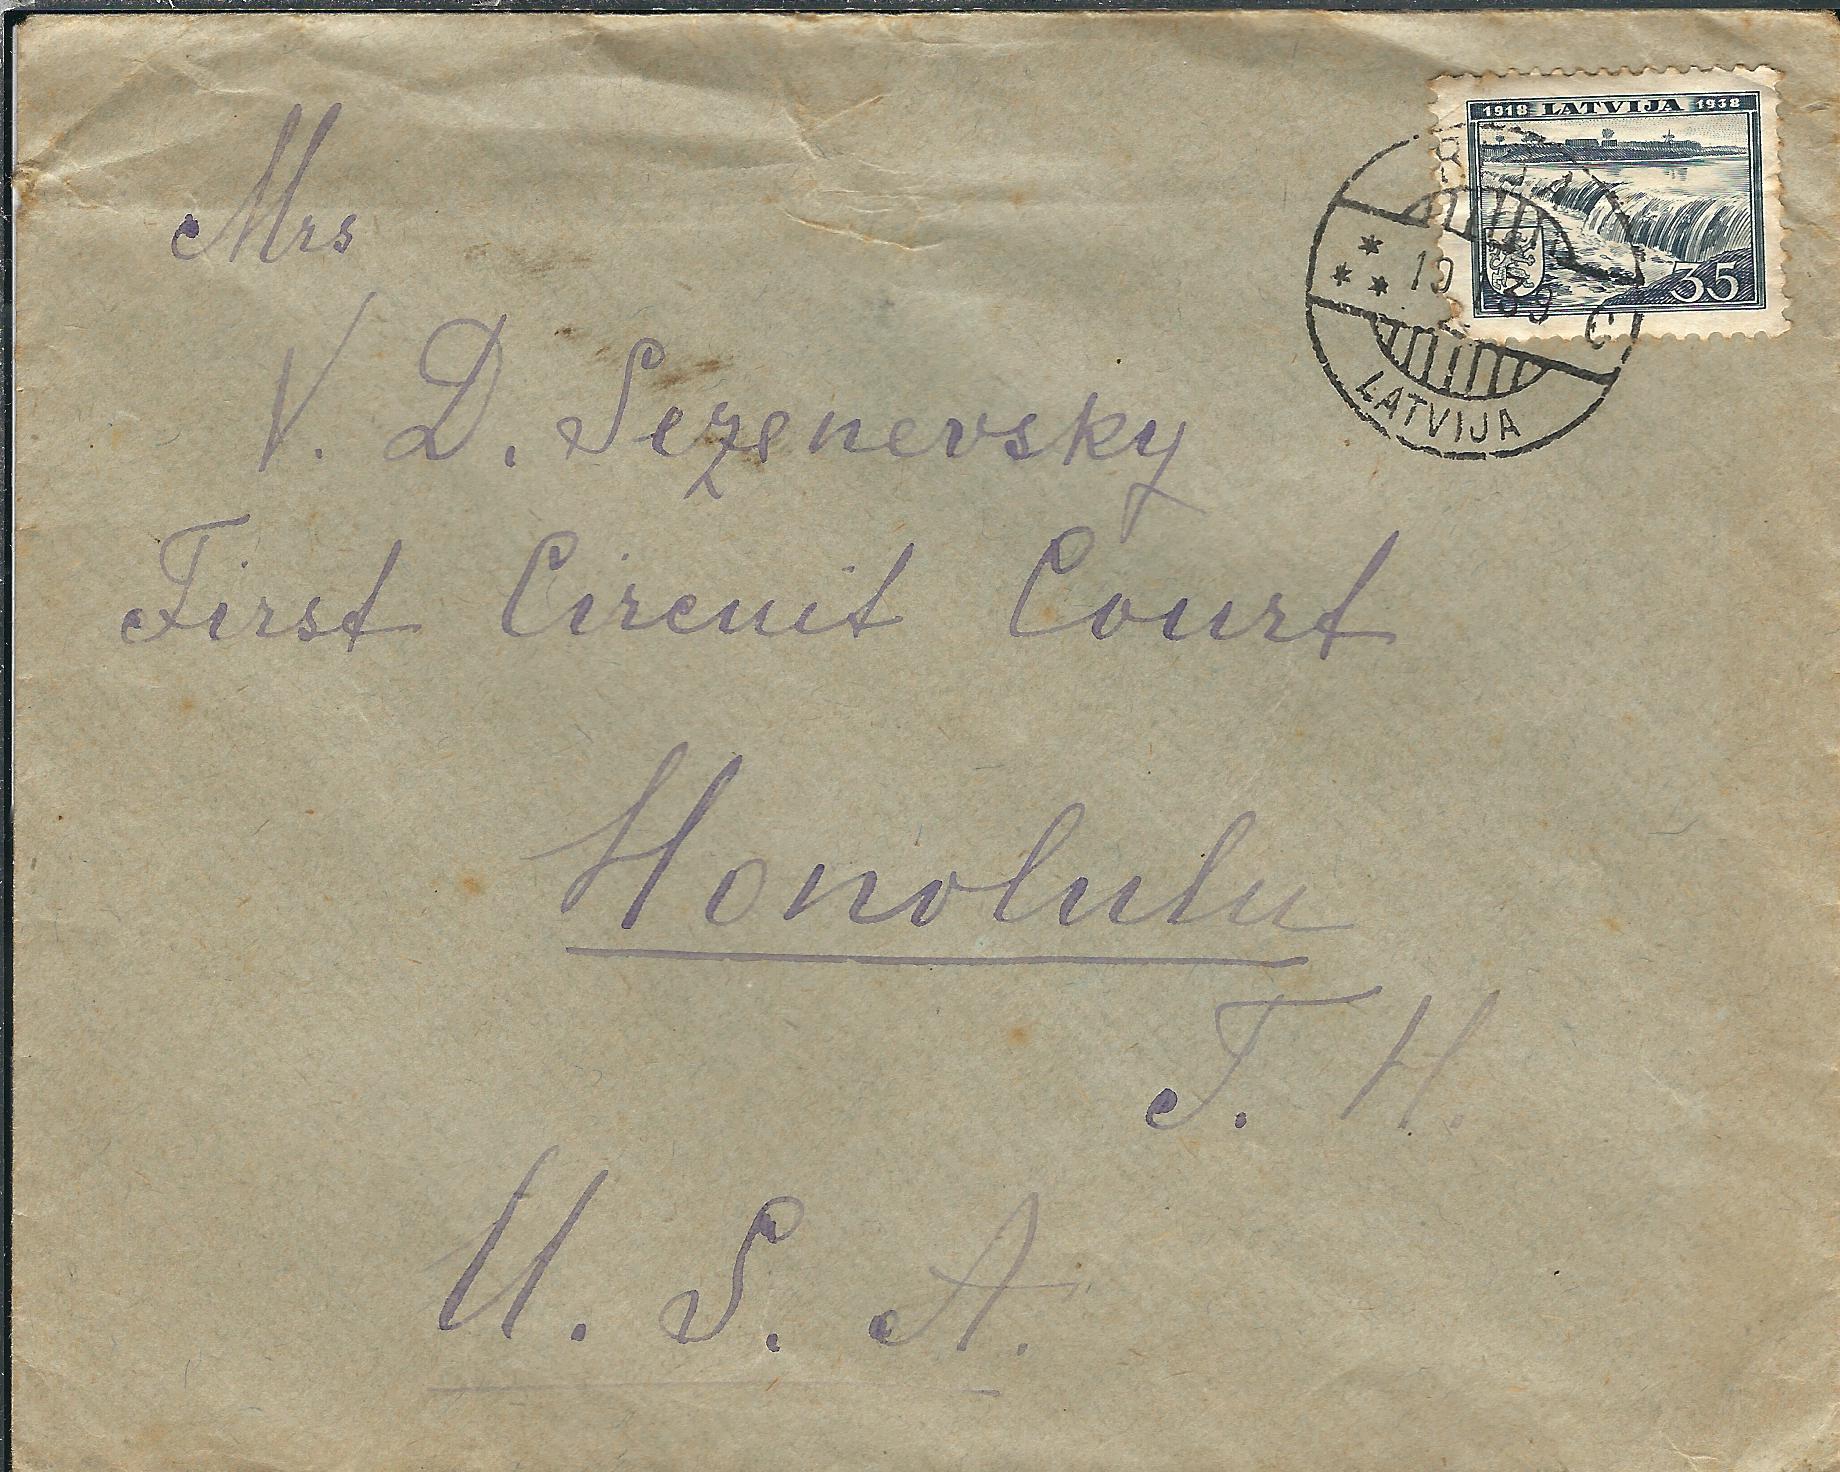 1918 LATVIJA 1938
35
LATVIJA
Mrs
V. D. Sezenevsky
First Circuit Court
Honolulu
T. H.
U. S. A.